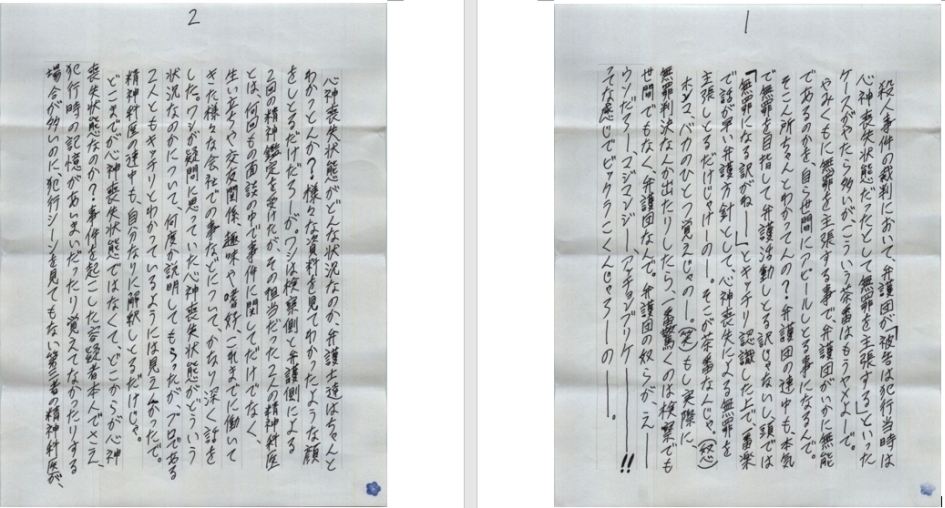 1
殺人事件の裁判において、弁護団が「被告は犯行当時は
心神喪失状態だったとして無罪を主張する」といった
ケースがやたら多いが、こういう茶番はもうヤメよーで。
やみくもに無罪を主張する事で、弁護団がいかに無能
であるのかを、自ら世間にアピールしとる事になるんで。
そこん所ちゃんとわかってんの?弁護団の連中も、本気
で無罪を目指して弁護活動しとる訳じゃないし、頭では
「無罪になる訳がねー」とキッチリ認識した上で、一番楽
で話が早い弁護方針として、心神喪失による無罪を
主張しとるだけじゃけーのー。そこが茶番なんじゃ。(怒)
ホンマ、バカのひとつ覚えじゃのー。(笑)もし実際に、
無罪判決なんか出たりしたら、一番驚くのは検察でも
世間でもなく、弁護団なんで。弁護団の奴らが、えー
ウソだろー、マジマンジー、アチョブリケーーーー!!
ってな感じでビックラこくんじゃろーのー。
2
心神喪失状態がどんな状況なのか、弁護士達はちゃんと
わかっとんか?様々な資料を見てわかったような顔
をしとるだけだろーが。ワシは検察側と弁護側による
2回の精神鑑定を受けたが、その担当だった2人の精神科医
とは、何回もの面談の中で事件に関してだけでなく、
生い立ちや交友関係、趣味や嗜好、これまでに働いて
きた様々な会社での事などについて、かなり深く話を
した。ワシが疑問に思っていた心神喪失状態がどういう
状況なのかについて、何度か説明してもらったが、プロである
2人ともキッチリとわかっているようには見えんかったで。
精神科医の連中も、自分なりに解釈しとるだけじゃ。
どこまでが心神喪失状態ではなくて、どこからが心神
喪失状態なのか?事件を起こした容疑者本人でさえ、
犯行時の記憶があいまいだったり、覚えてなかったりする
場合が多いのに、犯行シーンを見てもない第三者の精神科医が、